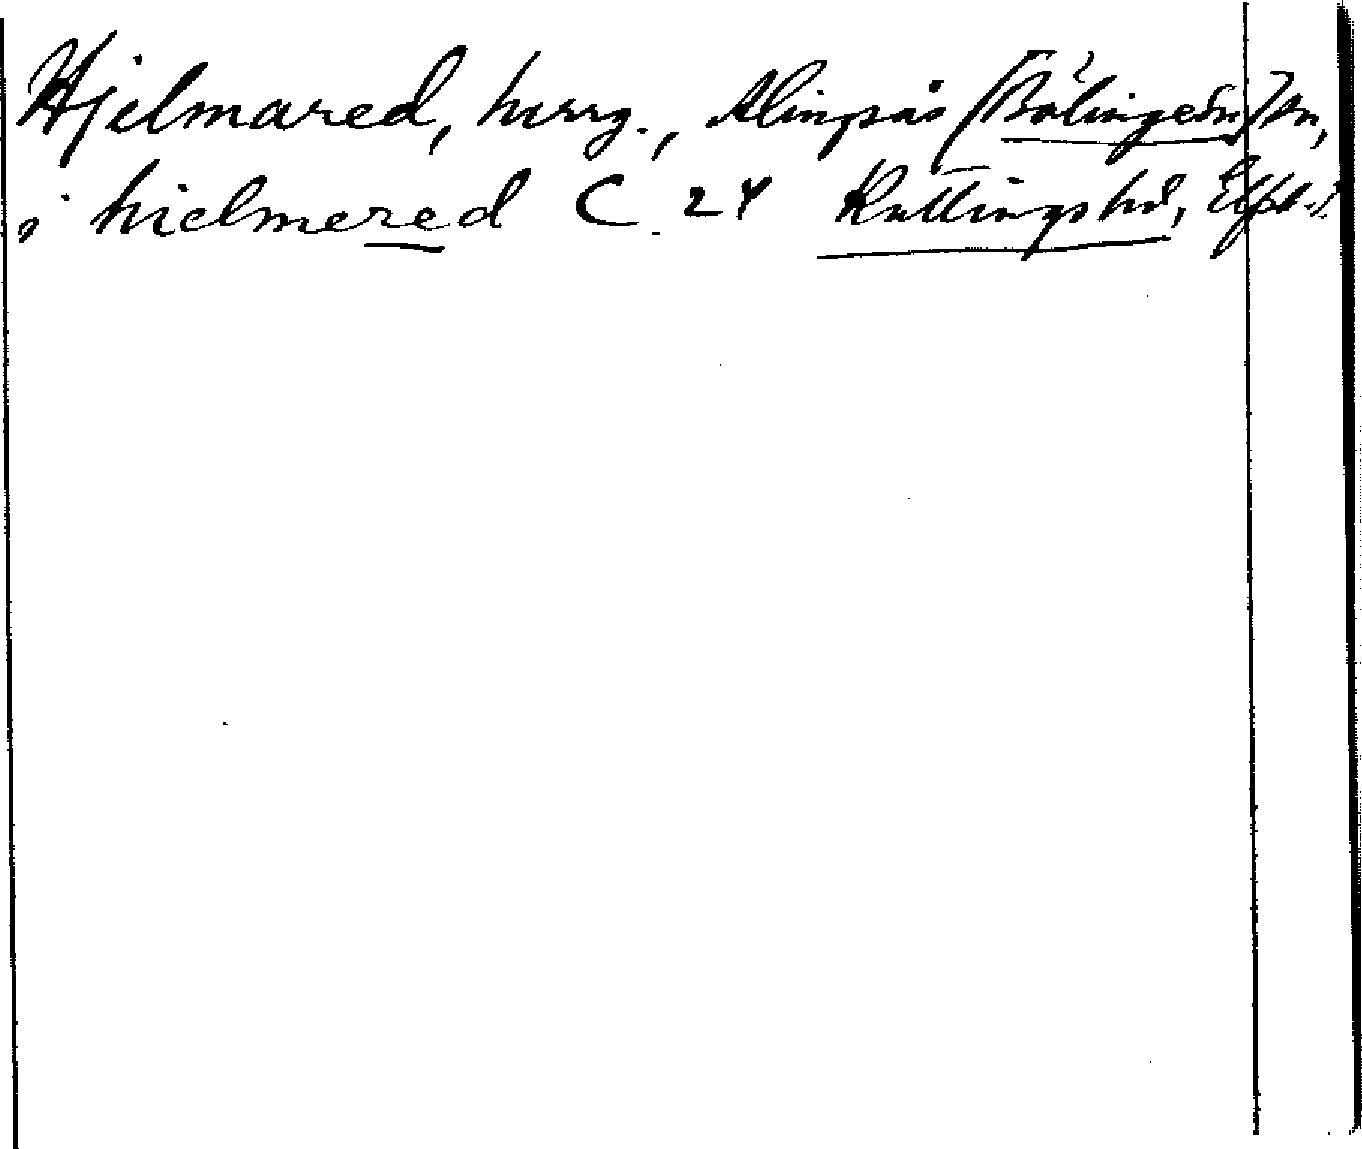 Hjelmared, herrg., Alingsås (Bälingedn) sn,
i hielmered C. 24 Kullings hd, Elfsb. l.